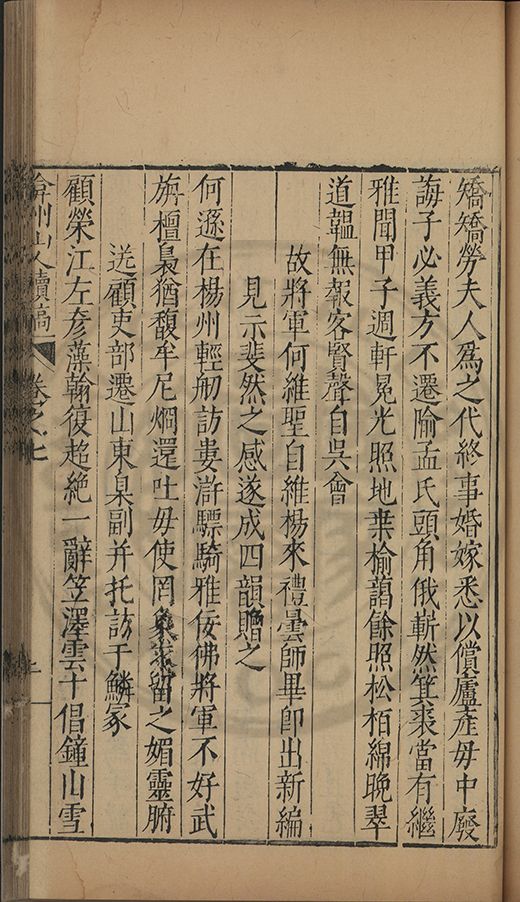 矯矯勞夫人爲之代終事婚嫁悉以償廬產毋中廢
誨子必義方不遷隃孟氏頭角俄嶄然箕裘當有繼
雅聞甲子週軒冕光照地桒榆藹餘照松栢綿晚翠
道韞無報客賢聲自吳會
故將軍何維聖自維楊來禮曇師畢卽出新編
見示斐然之感遂成四韻贈之
何遜在楊州輕舠訪婁滸驃騎雅佞佛將軍不好武
旃檀裊猶馥牟尼烱還吐毋使罔象來留之媚靈腑
送顧吏部遷山東臬副并托訪于鱗家
顧榮江左彥藻翰復超絕一辭笠澤雲十倡鐘山雪
弇州山人續稿
卷之七